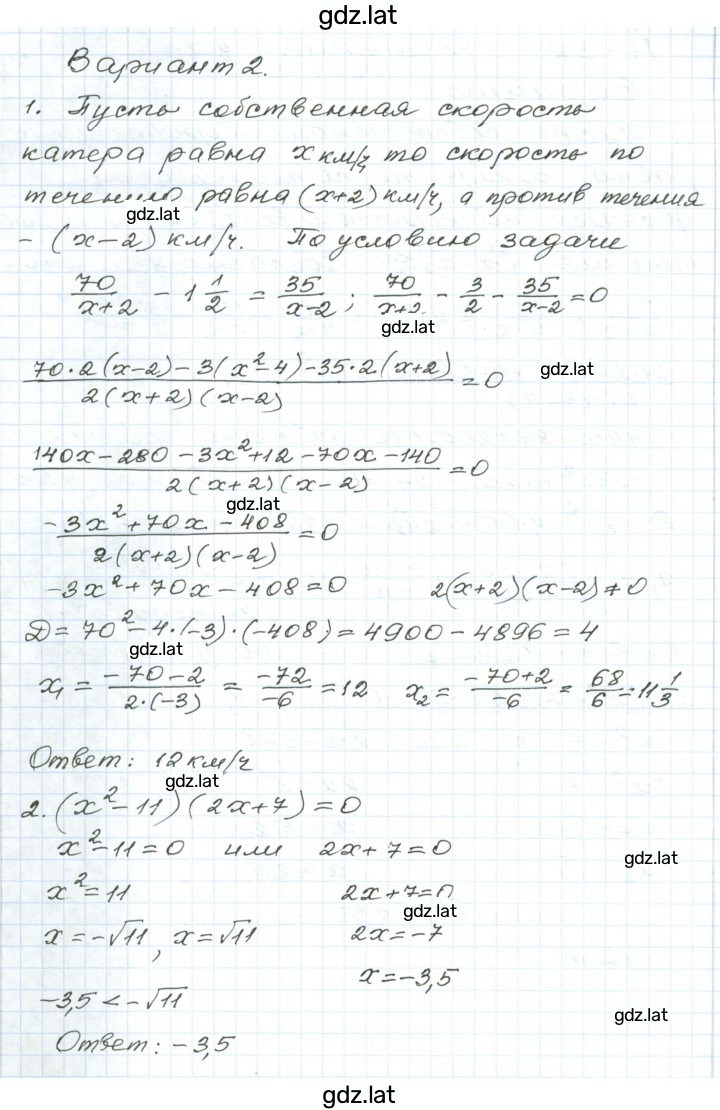 gdz.lat
Вариант 2.
1. Пусть собственная скорость
катера равна x км/ч, то скорость по
течению равна (x+2) км/ч, а против течения
gdz.lat
– (x–2) км/ч. По условию задачи
70/(x+2) – 1 1/2 = 35/(x–2); 70/(x+2) – 3/2 – 35/(x–2) = 0
gdz.lat
(70·2(x–2) – 3(x²–4) – 35·2(x+2))/(2(x+2)(x–2)) = 0
gdz.lat
(140x – 280 – 3x² + 12 – 70x – 140)/(2(x+2)(x–2)) = 0
gdz.lat
(–3x² + 70x – 408)/(2(x+2)(x–2)) = 0
–3x² + 70x – 408 = 0 2(x+2)(x–2) ≠ 0
D = 70² – 4·(–3)·(–408) = 4900 – 4896 = 4
gdz.lat
x₁ = (–70–2)/(2·(–3)) = –72/–6 = 12 x₂ = (–70+2)/–6 = 68/6 = 11 1/3
Ответ: 12 км/ч
gdz.lat
2. (x² – 11)(2x+7) = 0
x² – 11 = 0 или 2x + 7 = 0
gdz.lat
x² = 11 2x + 7 = 0
gdz.lat
x = –√11, x = √11 2x = –7
x = –3,5
–3,5 < –√11
gdz.lat
Ответ: –3,5
gdz.lat